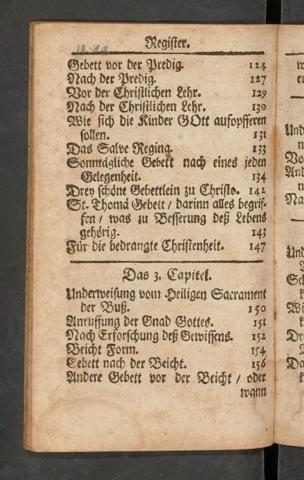 Register.
Gebett vor der Predig. 124
Nach der Predig. 127
Vor der Christlichen Lehr. 129
Nach der Christlichen Lehr. 130
Wie sich die Kinder GOtt aufopfferen
sollen. 131
Das Salve Regina. 133
Sonntägliche Gebett nach eines jeden
Gelegenheit. 134
Drey schöne Gebettlein zu Christo. 142
St. Thomä Gebett / darinn alles begrif-
fen / was zu Besserung deß Lebens
gehörig. 143
Für die bedrangte Christenheit. 147
Das 3. Capitel.
Underweisung vom Heiligen Sacrament
der Buß. 150
Anruffung der Gnad Gottes. 151
Nach Erforschung deß Gewissens. 152
Beicht Form. 154
Gebett nach der Beicht. 156
Andere Gebett vor der Beicht / oder
wann